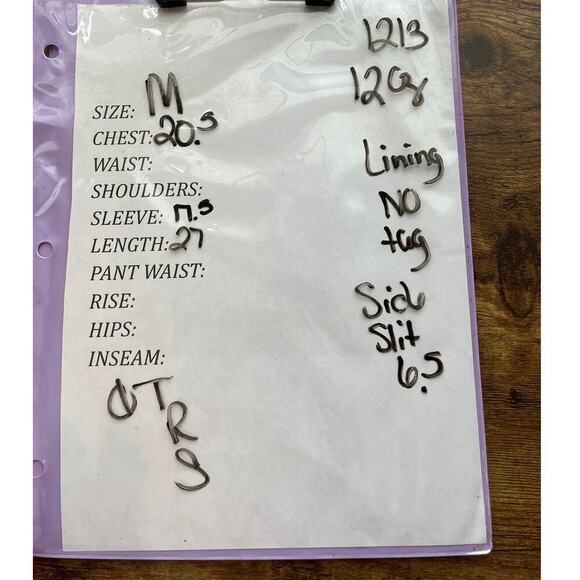 1213
120g
SIZE: M
CHEST: 20.5
WAIST:
SHOULDERS:
SLEEVE: 17.5
LENGTH: 27
PANT WAIST:
RISE:
HIPS:
INSEAM:
Lining
NO
tag
Side
Slit
6.5
T
R
S